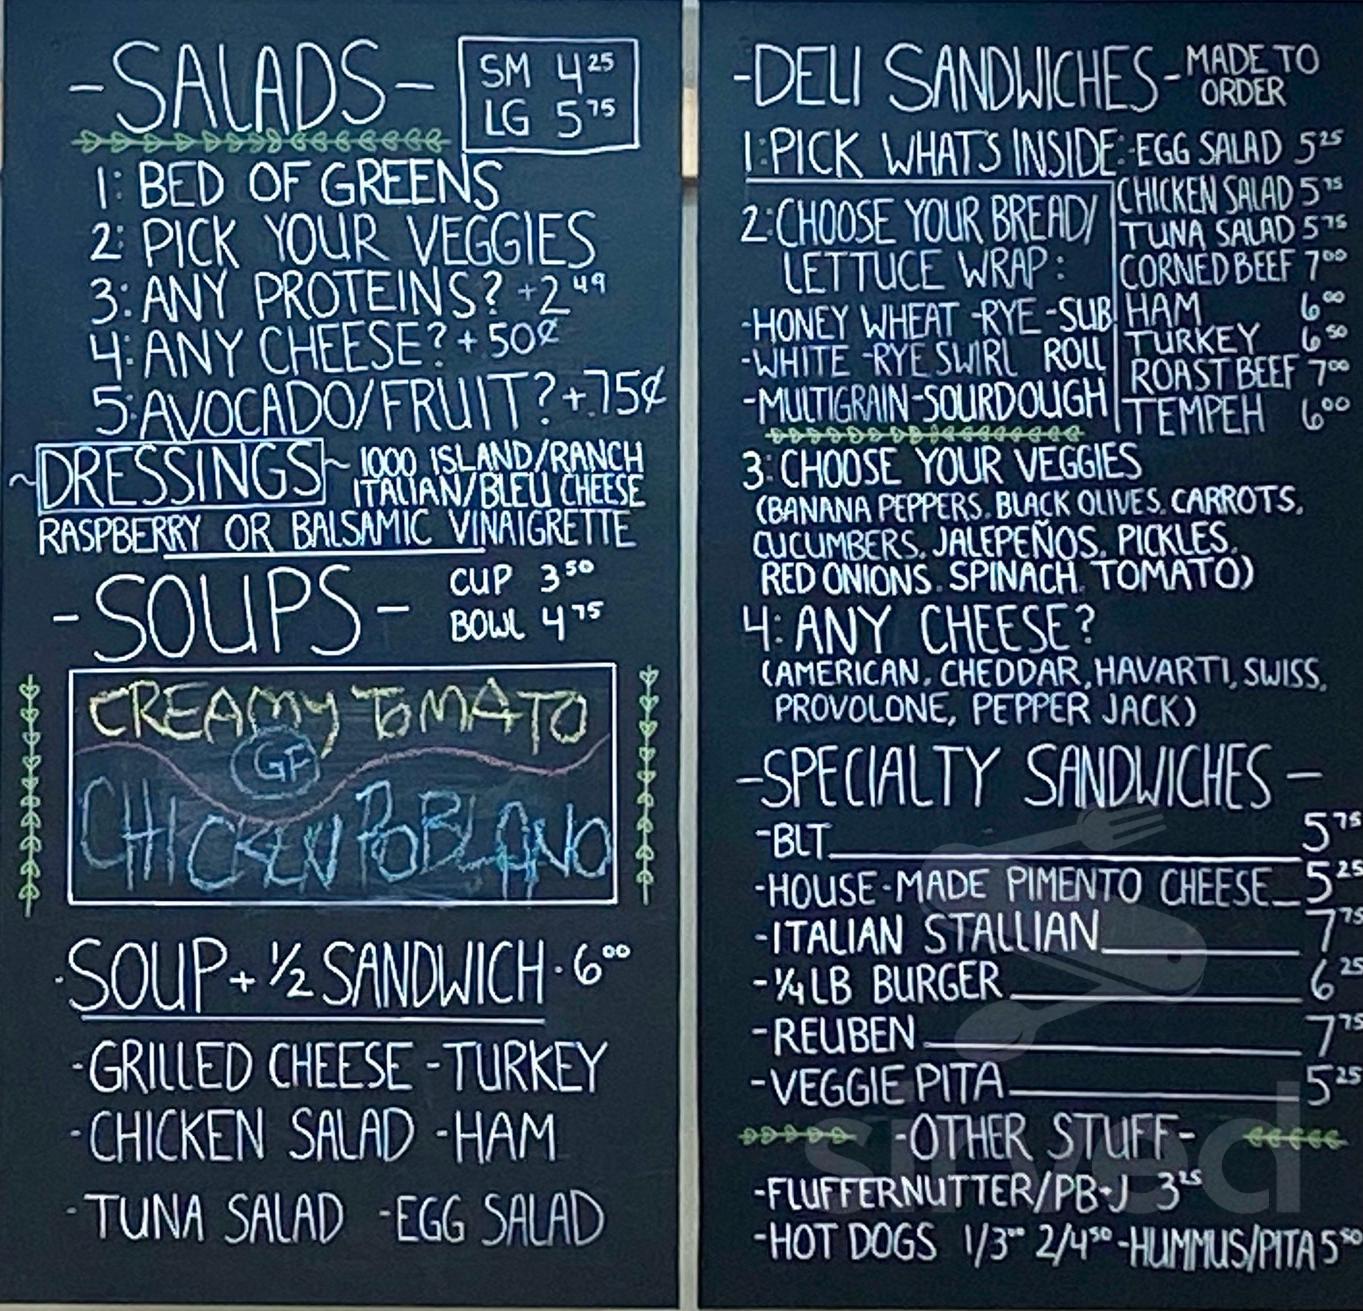 -SALADS-
SM 4.25
LG 5.75
1: BED OF GREENS
2: PICK YOUR VEGGIES
3: ANY PROTEINS? +2.49
4: ANY CHEESE? +50¢
5: AVOCADO/FRUIT? +.75¢
~DRESSINGS~ 1000 ISLAND/RANCH
ITALIAN/BLEU CHEESE
RASPBERRY OR BALSAMIC VINAIGRETTE
-SOUPS-
CUP 3.50
BOWL 4.75
CREAMY TOMATO
GF
CHICKEN POBLANO
·SOUP + 1/2 SANDWICH· 6.00
-GRILLED CHEESE -TURKEY
-CHICKEN SALAD -HAM
-TUNA SALAD -EGG SALAD
-DELI SANDWICHES- MADE TO
ORDER
1: PICK WHAT'S INSIDE: -EGG SALAD 5.25
CHICKEN SALAD 5.75
TUNA SALAD 5.75
CORNED BEEF 7.00
HAM 6.00
TURKEY 6.50
ROAST BEEF 7.00
TEMPEH 6.00
2: CHOOSE YOUR BREAD/
LETTUCE WRAP:
-HONEY WHEAT -RYE -SUB
-WHITE -RYE SWIRL ROLL
-MULTIGRAIN -SOURDOUGH
3: CHOOSE YOUR VEGGIES
(BANANA PEPPERS, BLACK OLIVES, CARROTS,
CUCUMBERS, JALEPEÑOS, PICKLES,
RED ONIONS, SPINACH, TOMATO)
4: ANY CHEESE?
(AMERICAN, CHEDDAR, HAVARTI, SWISS,
PROVOLONE, PEPPER JACK)
-SPECIALTY SANDWICHES-
-BLT 5.75
-HOUSE-MADE PIMENTO CHEESE 5.25
-ITALIAN STALLIAN 7.75
-1/4 LB BURGER 6.25
-REUBEN 7.75
-VEGGIE PITA 5.25
-OTHER STUFF-
-FLUFFERNUTTER/PB+J 3.25
-HOT DOGS 1/3.00 2/4.50 -HUMMUS/PITA 5.50
sirved